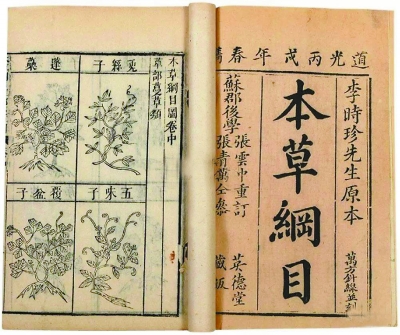 道光丙戌年春
李時珍先生原本
本草綱目
萬方針線並刻
蘇郡後學
張雲中重訂
張青萬仝參
英德堂
藏板
本草綱目圖卷中
草部蔓草類
菟絲子
蓬蘽
五味子
覆盆子